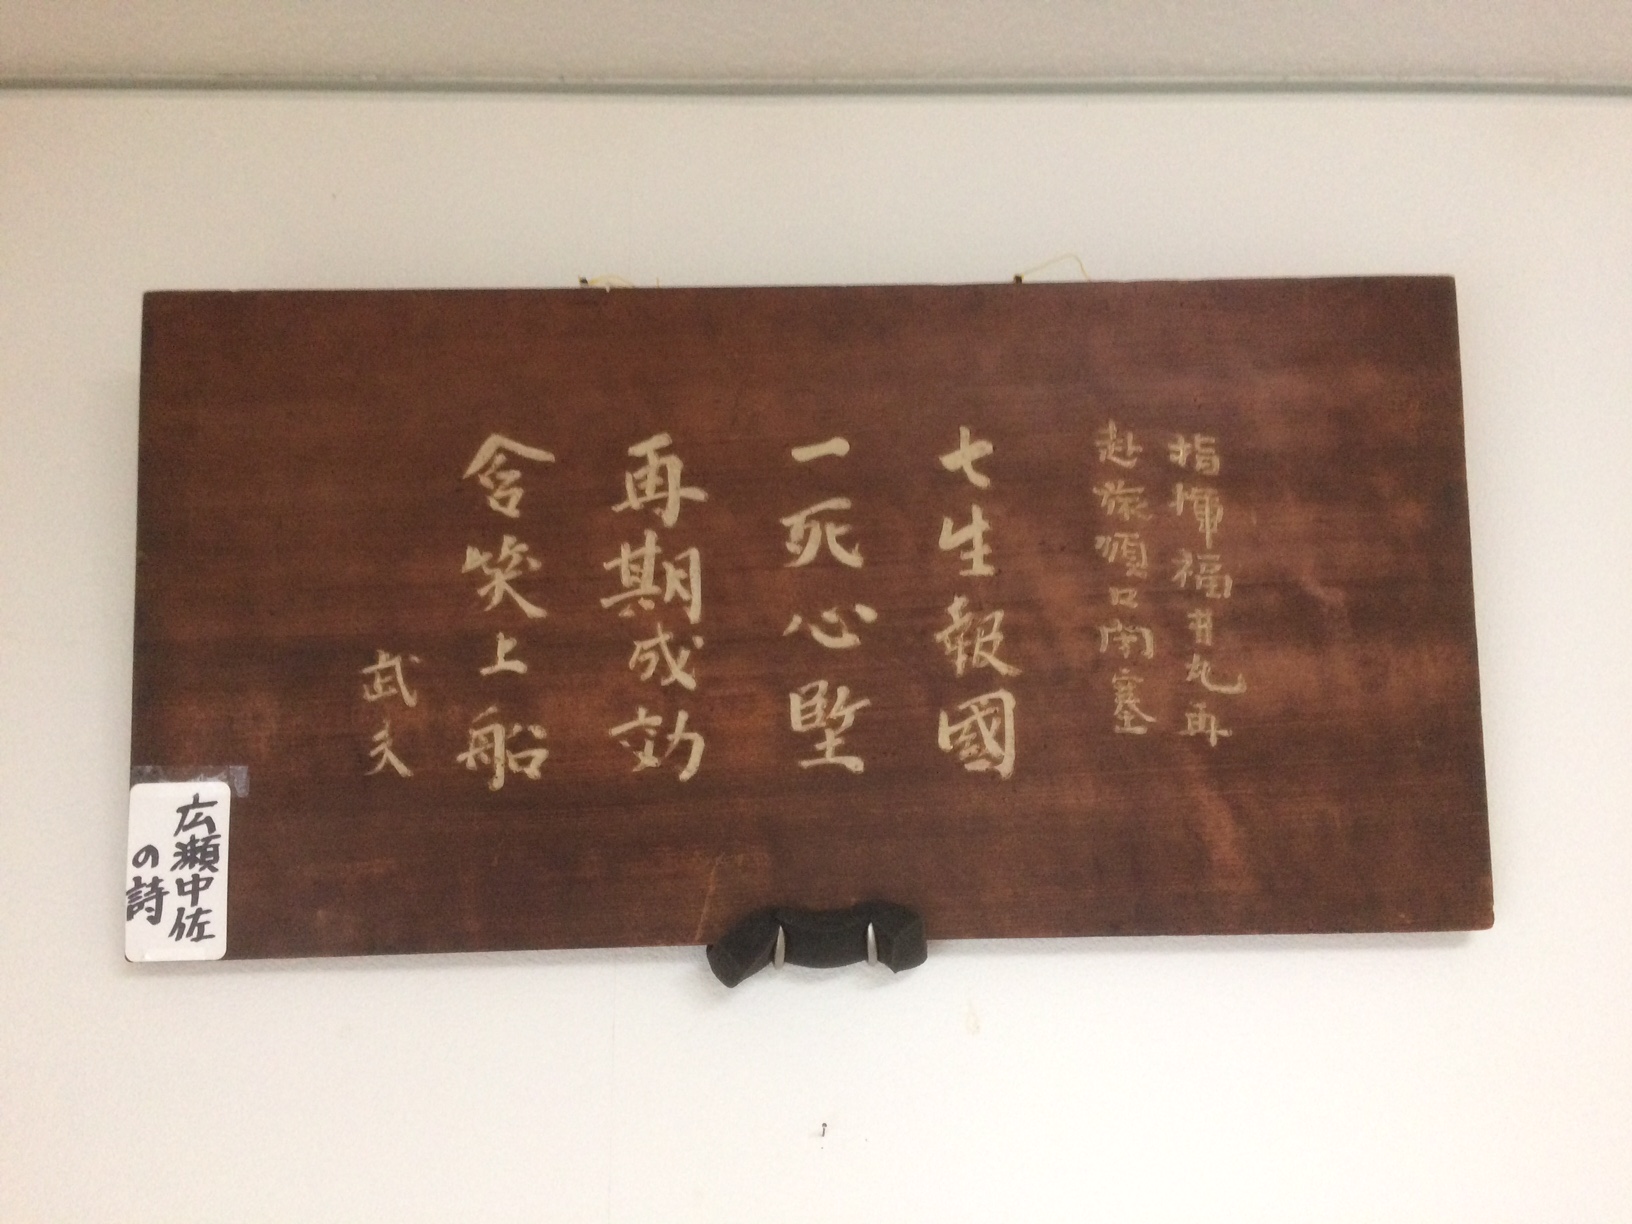 指揮福井丸再
赴旅順口閉塞
七生報國
一死心堅
再期成効
含笑上船
武夫
広瀬中佐
の詩